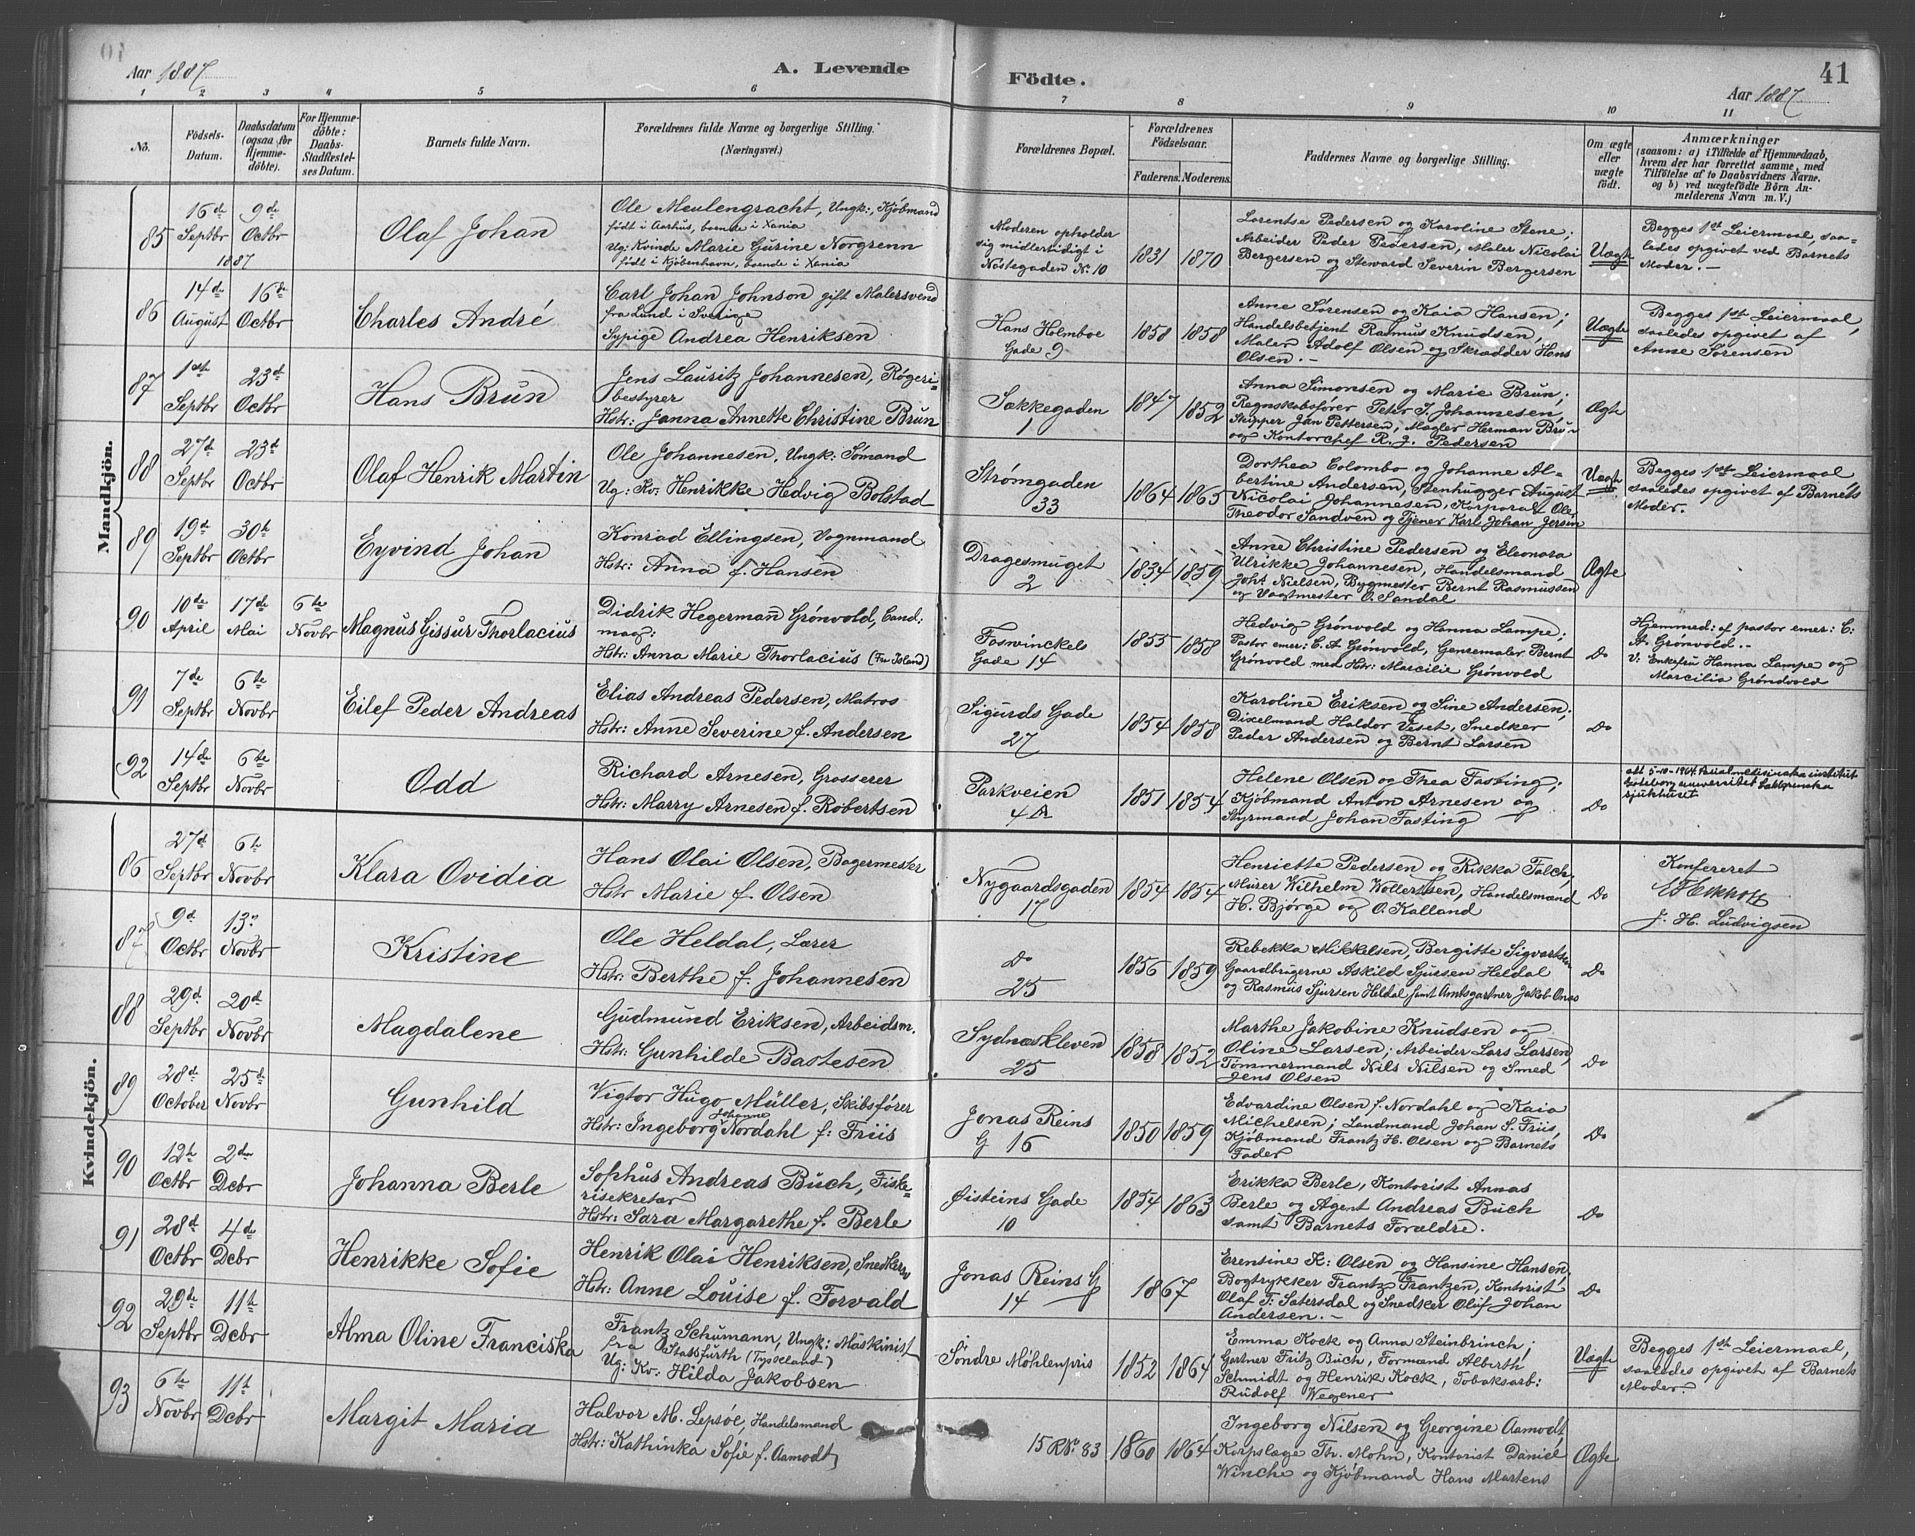 Aar 1887
A. Levende
Födte.
41
Aar 1887
1 2 3 4 5 6 7 8 9 10 11
No.
Födsels-
Datum.
Daabsdatum
(ogsaa for
Hjemme-
döbte).
For Hjemme-
döbte:
Daabs-
Stadfæstel-
ses Datum.
Barnets fulde Navn.
Forældrenes fulde Navne og borgerlige Stilling.
(Næringsvei.)
Forældrenes Bopæl.
Forældrenes
Födselsaar.
Faderens. Moderens.
Faddernes Navne og borgerlige Stilling.
Om ægte
eller
uægte
födt.
Anmærkninger
(saasom: a) i Tilfælde af Hjemmedaab,
hvem der har forrettet samme, med
Tilföielse af to Daabsvidners Navne.
og b) ved uægtefödte Börn An-
melderens Navn m. V.)
Mandkjön.
85
16de Septbr 1887
9de Octbr
Olaf Johan
Ole Meulengracht, Ungk:, Kjøbmand
født i Aarhus, boende i Xania
Ug: Kvinde Marie Gurine Norgrenn
født i Kjøbenhavn, boende i Xania
Moderen opholder
sig midlertidigt i
Nøstegaden No 10
1831 1870
Lorentse Pedersen og Karoline Stene;
Arbeider Peder Pedersen, Maler Nicolai
Bergersen og Steward Severin Bergersen
Uægte
Begges 1st Leiermaal, saa-
ledes opgivet ved Barnets
Moder.-
86
14de August
16de Octbr
Charles André
Carl Johan Johnson gift Malersvend
fra Lund i Sverige
Sypige Andrea Henriksen
Hans Holmboe
Gade 9
1858 1858
Anne Sørensen og Kaia Hansen;
Handelsbetjent Rasmus Knudsen,
Maler Adolf Olsen og Skrædder Hans
Olsen.-
Uægte
Begges 1st Leiermaal,
saaledes opgivet af
Anne Sørensen
87
1ste Septbr
23de Octbr
Hans Brun
Jens Lauritz Johannesen, Røgeri-
bestyrer
Hstr: Janna Annette Christine Brun
Sækkegaden
1
1847 1852
Anna Simonsen og Marie Brun;
Regnskabsfører Peter J. Johannesen,
Skipper Jan Pettersen, Mægler Herman Brun
og Kontorchef R. J. Pedersen
Ægte
88
27de Septbr
23de Octbr
Olaf Henrik Martin
Ole Johannesen, Ungk: Sømand
Ug: Kv: Henrikke Hedvig Bolstad
Strømgaden
33
1864 1865
Dorthea Colombo og Johanne Al-
bertine Andersen, Stenhugger August
Nicolai Johannesen, Korporal Ole
Theodor Sandven og Tjener Karl Johan Jersin
Uægte
Begges 1ste Leiermaal
saaledes opgivet af Barnets
Moder.
89
19de Septbr
30te Octbr
Eyvind Johan
Konrad Ellingsen, Vognmand
Hstr: Anna f. Hansen
Dragesmuget
2
1834 1859
Anne Christine Pedersen og Eleonora
Ulrikke Johannesen, Handelsmand
Johs. Nielsen, Bygmester Bernt Rasmussen
og Vagtmester O. Sandal
Ægte
90
10de April
17de Mai
6te Novbr
Magnus Gissur Thorlacius
Didrik Hegerman Grønvold, Cand:
mag:
Hstr: Anna Marie Thorlacius (fra Island)
Foswinckels
Gade 14
1855 1858
Hedvig Grønvold og Hanna Lampe;
Pastor emer: C. A. Grønvold, Genremaler Bernt
Grønvold med Hstr: Marcilie Grønvold
Do
Hjemmed: af pastor emer: C:
A. Grønvold.-
V: Enkefru Hanna Lampe og
Marcilia Grøndvold
91
7de Septbr
6te Novbr
Eilef Peder Andreas
Elias Andreas Pedersen, Matros
Hstr: Anne Severine f. Andersen
Sigurds Gade
27
1854 1858
Karoline Eriksen og Sine Andersen;
Dixelmand Haldor Veset, Snedker
Peder Andersen og Bernt Larsen
Do
92
14de Septbr
6te Novbr
Odd
Richard Arnesen, Grosserer
Hstr: Marry Arnesen f. Robertsen
Parkveien
4 a
1851 1854
Helene Olsen og Thea Fasting;
Kjøbmand Anton Arnesen og
Styrmand Johan Fasting
Do
att 5-10-1964 Socialmedisinska institut
Göteborg universitet Sahlgrenska
sjukhuset
Kvindekjön.
86
27de Septbr
6te Novbr
Klara Ovidia
Hans Olai Olsen, Bagermester
Hstr Marie f. Olsen
Nygaardsgaden
17
1854 1854
Henriette Pedersen og Rikka Falch,
Murer Wilhelm Wollertsen, Handelsmænd
H. Bjørge og O. Kalland
Do
Konfereret
J. H. Ludvigsen
87
9de Octbr
13de Novbr
Kristine
Ole Heldal, Lærer
Hstr: Berthe f. Johannesen
Do
25
1856 1859
Rebekka Mikkelsen, Bergitte Sigvartsen
Gaardbrugerne Askild Sjursen Heldal
og Rasmus Sjursen Heldal samt Amtsgartner Jakob Onas
Do
88
29de Septbr
20de Novbr
Magdalene
Gudmund Eriksen, Arbeidsm.
Hstr: Gunhilde Bastesen
Sydnæskleven
25
1858 1852
Marthe Jakobine Knudsen og
Oline Larsen; Arbeider Lars Larsen,
Tømmermand Nils Nilsen og Smed
Jens Olsen
Do
89
28de October
25de Novbr
Gunhild
Vigtor Hugo Müller, Skibsfører
Hstr: Ingeborg Johanne Nordahl f: Friis
Jonas Reins
G 16
1850 1859
Edvardine Olsen f. Nordahl og Kaia
Michelsen; Landmand Johan S. Friis,
Kjøbmand Frantz H. Olsen og Barnets
Fader
Do
90
12te Octbr
2den Dcbr
Johanna Berle
Sophus Andreas Buch, Fiske-
risekretær
Hstr: Sara Margarethe f. Berle
Øisteins Gade
10
1854 1863
Erikka Berle, Kontorist Annas
Berle og Agent Andreas Buch
samt Barnets Forældre.
Do
91
28de Octbr
4de Dcbr
Henrikke Sofie
Henrik Olai Henriksen, Snedkersv
Hstr: Anne Louise f. Forvald
Jonas Reins G
14
1867
Erentine K: Olsen og Hansine Hansen,
Bogtrykker Frantz Frantzen, Kontorist
Olaf T: Satersdal og Snedker Oluf Johan
Andersen.-
Do
92
29de Septbr
11te Dcbr
Alma Oline Franciska
Frantz Schumann, Ungk: Maskinist
fra Statsfurth (Tyskland)
Ug: Kv: Hilda Jakobsen
Söndre Möhlenpris
1852 1864
Emma Kock og Anna Steinbrinch;
Gartner Fritz Buch, Formand Alberth
Schmidt og Henrik Kock, Tobaksarb:
Rudolf Wegener
Uægte
Begges 1ste Leiermaal,
saaledes opgivet af Barnets
Moder.
93
6te Novbr
11te Dcbr
Margit Maria
Halvor M. Lepsøe, Handelsmand
Hstr: Kathinka Sofie f. Aamodt
15 R No 83
1860 1864
Ingeborg Nilsen og Georgine Aamodt,
Korpslæge Th. Mohn, Kontorist Daniel
Winche og Kjøbmand Hans Martens
Ægte